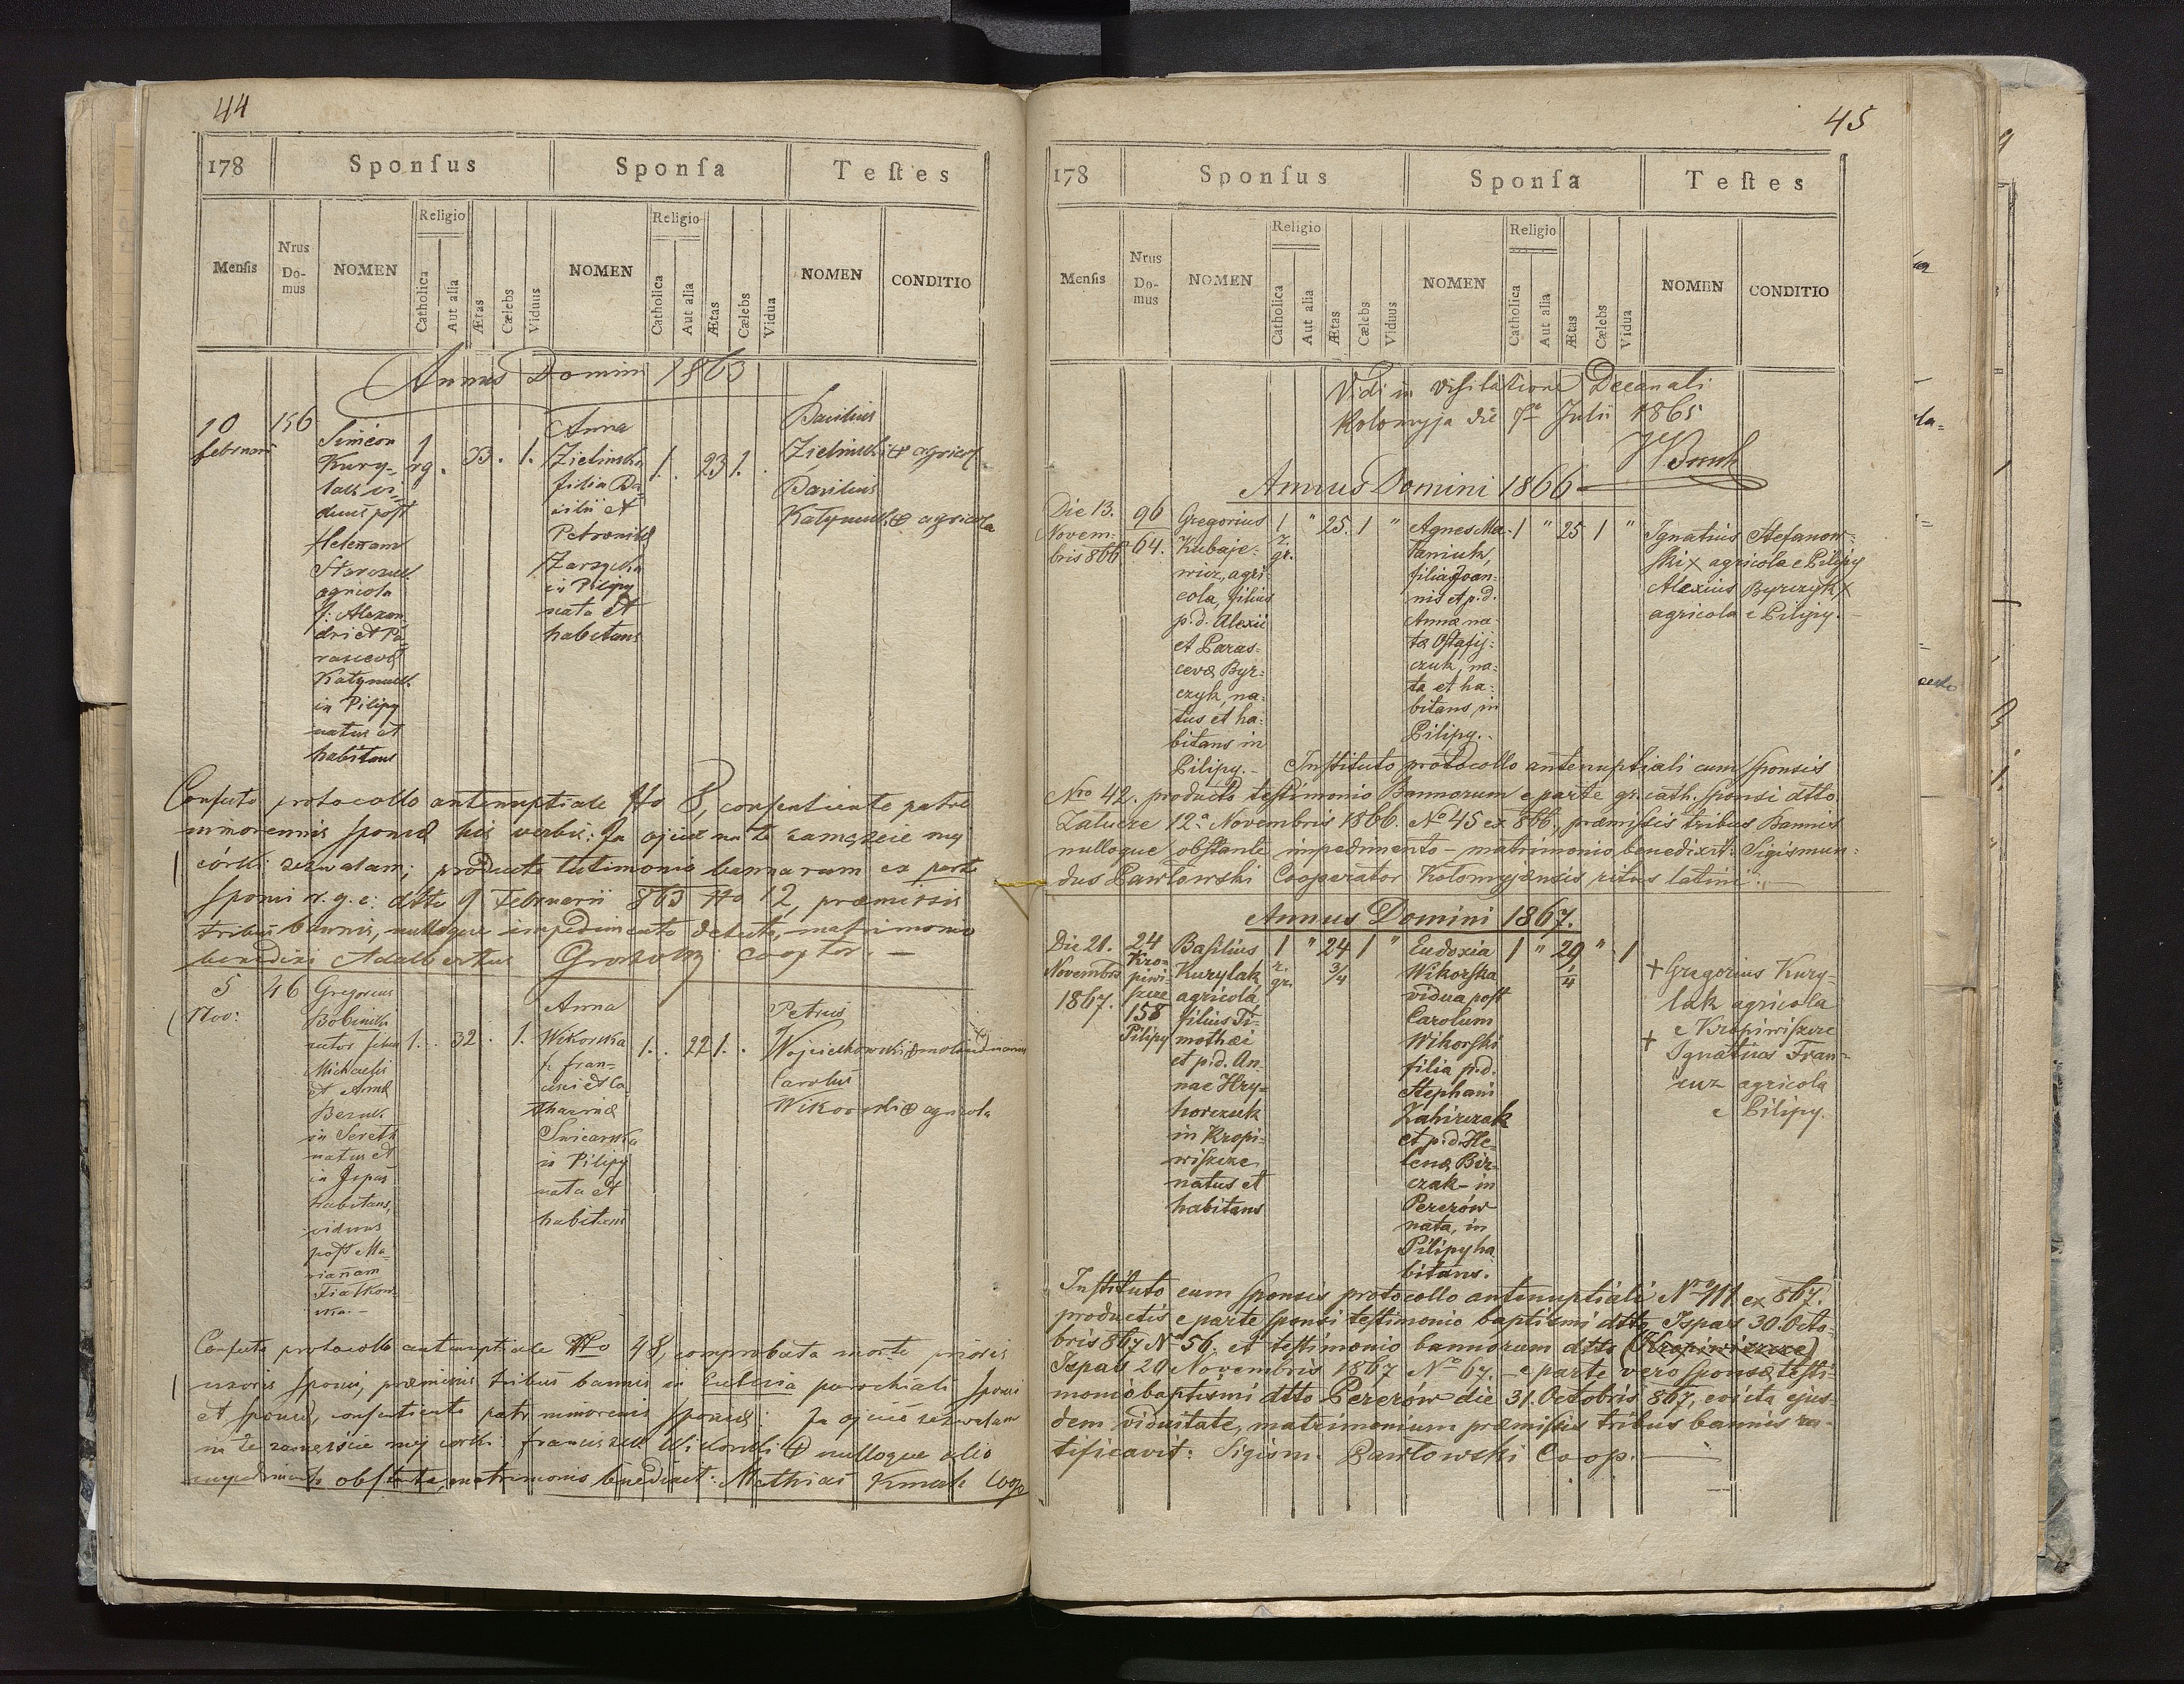 44
178 Sponſus Sponſa Teſtes
Religio Religio
Menſis Nrus Do-mus NOMEN Catholica Aut alia Ætas Cælebs Viduus NOMEN Catholica Aut alia Ætas Cælebs Vidua NOMEN CONDITIO
Annus Domini 1863
10
februarii
156
Simeon
Kury-
lak vi-
duus post
Helenam
agricola
f: Alexan
dri et Pa
rascevæ
in Pilipy
natus et
habitans
1
rg.
33. 1.
Anna
Zielinska
filia Ba-
silii et
Petronilæ
Zarzycka
in Pilipy
nata et
habitans
1. 23 1.
Basilius
Zielinski + agricol
Basilius
agricola
Confecto protocollo antenuptiale No 8, consentiente patre
minorennis sponsæ his verbis: Ja ojciec na to zamęzcie mej
córki zezwalam; producto testimonio bannorum ex parte
sponsi r. g. c: dtto 9 Februarii 863 No 12, præmissis
tribus bannis, nulloque impedimento detecto, matrimonio
benedixi Adalbertus cooptor. —
5
Nov:
46
Gregorius
natus filius
Michaelis
et Annæ
in Sereth
natus et
in Ispas
habitans,
viduus
post Ma-
riannam
Fiałkow-
ska. —
1. 32. 1.
Anna
Wikorska
f. fran-
cisci et Ca-
tharinæ
in Pilipy
nata et
habitans
1. 22 1.
Petrus
Wojciechowski
Carolus
Wikorski + agricola
Confecto protocollo antenuptiale No 48, comprobata morte prioris
uxoris sponsi, præmissis tribus bannis in Ecclesia parochiali sponsi
et sponsæ, consentiente patre minorennis sponsæ: Ja ojciec zezwalam
na te zamęście mej corki franciszek Wikorski + nulloque alio
impedimento obstante, matrimonio benedixit: Mathias Kmak Coop
45
178 Sponſus Sponſa Teſtes
Religio Religio
Menſis Nrus Do-mus NOMEN Catholica Aut alia Ætas Cælebs Viduus NOMEN Catholica Aut alia Ætas Cælebs Vidua NOMEN CONDITIO
Vidi in visitatione Decanali
Kolomyja die Julii 1865
Annus Domini 1866
Die 13.
Novem-
bris 866
96
64.
Gregorius
Kubaje-
wicz, agri-
cola, filius
p.d. Alexii
et Paras-
cevæ Byr-
czyk, na-
tus et ha-
bitans in
Pilipy. –
1 " 25. 1 "
r.
gr.
Agnes Ma-
taniuk,
filia Joan-
nis et p.d.
Annæ na-
tæ Ostafij-
czuk, na-
ta et ha-
bitans in
Pilipy. -
1 " 25 1 "
Ignatius Stefanow-
ski x agricola e Pilipy
Alexius Byrczyk x
agricola e Pilipy. —
Instituto protocollo antenuptiali cum sponsis
Nro 42. producto testimonio Bannorum e parte gr. cath. sponsi dtto
Zalucze 12a Novembris 1866. No 45 ex 866, præmissis tribus Bannis
nulloque obstante impedimento – matrimonio benedixit: Sigismun-
dus Pawłowski Cooperator Kołomyjensis ritus latini. —
Annus Domini 1867.
Die 21.
Novembris
1867.
24
Kro-
piwi-
szcze
158
Pilipy
Basilius
Kurylak
agricola,
filius Ti-
mothæi
et p.d. An-
nae Hry-
horczuk
in Kropi-
wiszcze
natus et
habitans
1 " 24 1 "
r.
gr.
3/4
Eudoxia
Wikorska
vidua post
Carolum
Wikorski
filia p.d.
Stephani
Zahirczak
et p.d. He-
lenæ Bir-
czak – in
Pererów
nata, in
Pilipy ha
bitans.
1 " 29 " 1
1/4
+ Gregorius Kury-
lak agricola
e Kropiwiszcze
+ Ignatius Fran-
cuz agricola
e Pilipy.
Instituto cum sponsis protocollo antenuptiali Nro 111 ex 867.
productis e parte sponsi testimonio baptismi dtto Ispas 30. Octo-
bris 867 No 56. et testimonio bannorum dtto (Kropiwiszcze)
Ispas 20 Novembris 1867 No 67. – e parte vero sponsæ testi-
monio baptismi dtto Pererów die 31. Octobris 867, evicta ejus-
dem viduitate, matrimonium præmissis tribus bannis ra-
tificavit: Sigism. Pawłowski Coop. —